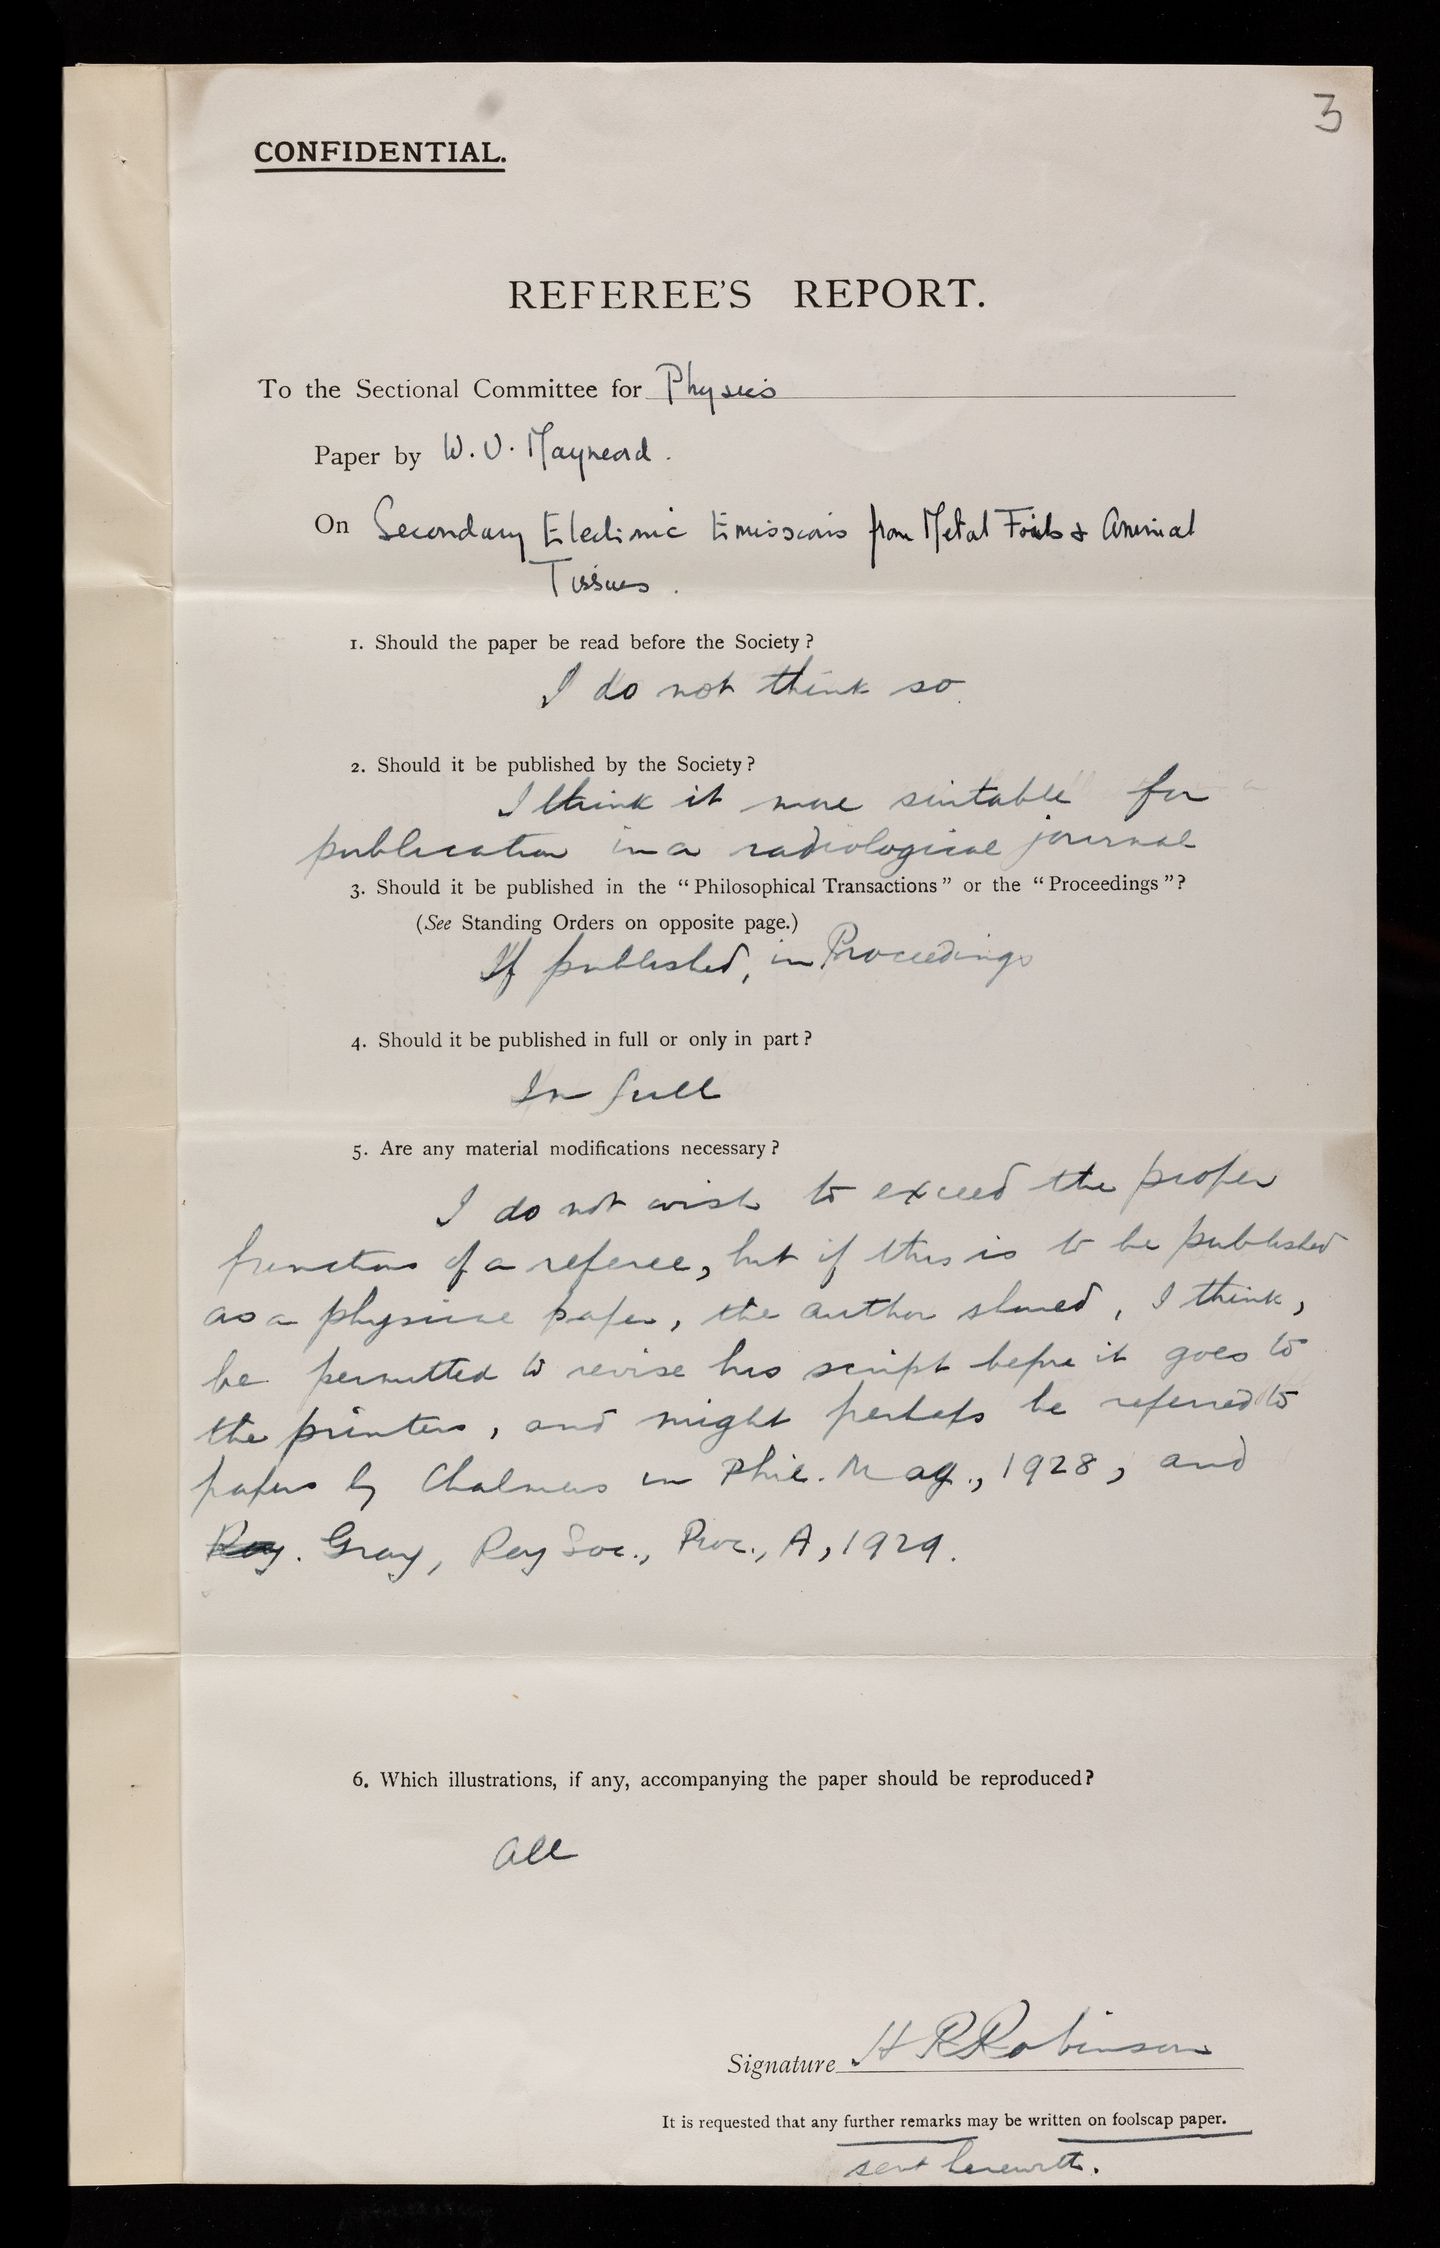 3
CONFIDENTIAL.
REFEREE'S REPORT.
To the Sectional Committee for Physics
Paper by W. V. Mayneord.
On Secondary Electronic Emissions from Metal Foils & Animal
Tissues.
1. Should the paper be read before the Society?
I do not think so.
2. Should it be published by the Society?
I think it more suitable for
publication in a radiological journal
3. Should it be published in the "Philosophical Transactions" or the "Proceedings"?
(See Standing Orders on opposite page.)
If published, in Proceedings
4. Should it be published in full or only in part?
In full
5. Are any material modifications necessary?
I do not wish to exceed the proper
functions of a referee, but if this is to be published
as a physical paper, the author should, I think,
be permitted to revise his script before it goes to
the printers, and might perhaps be referred to
papers by Chalmers in Phil. Mag., 1928, and
Roy. Gray, Roy Soc., Proc., A, 1929.
6. Which illustrations, if any, accompanying the paper should be reproduced?
All
Signature H R Robinson
It is requested that any further remarks may be written on foolscap paper.
sent herewith.